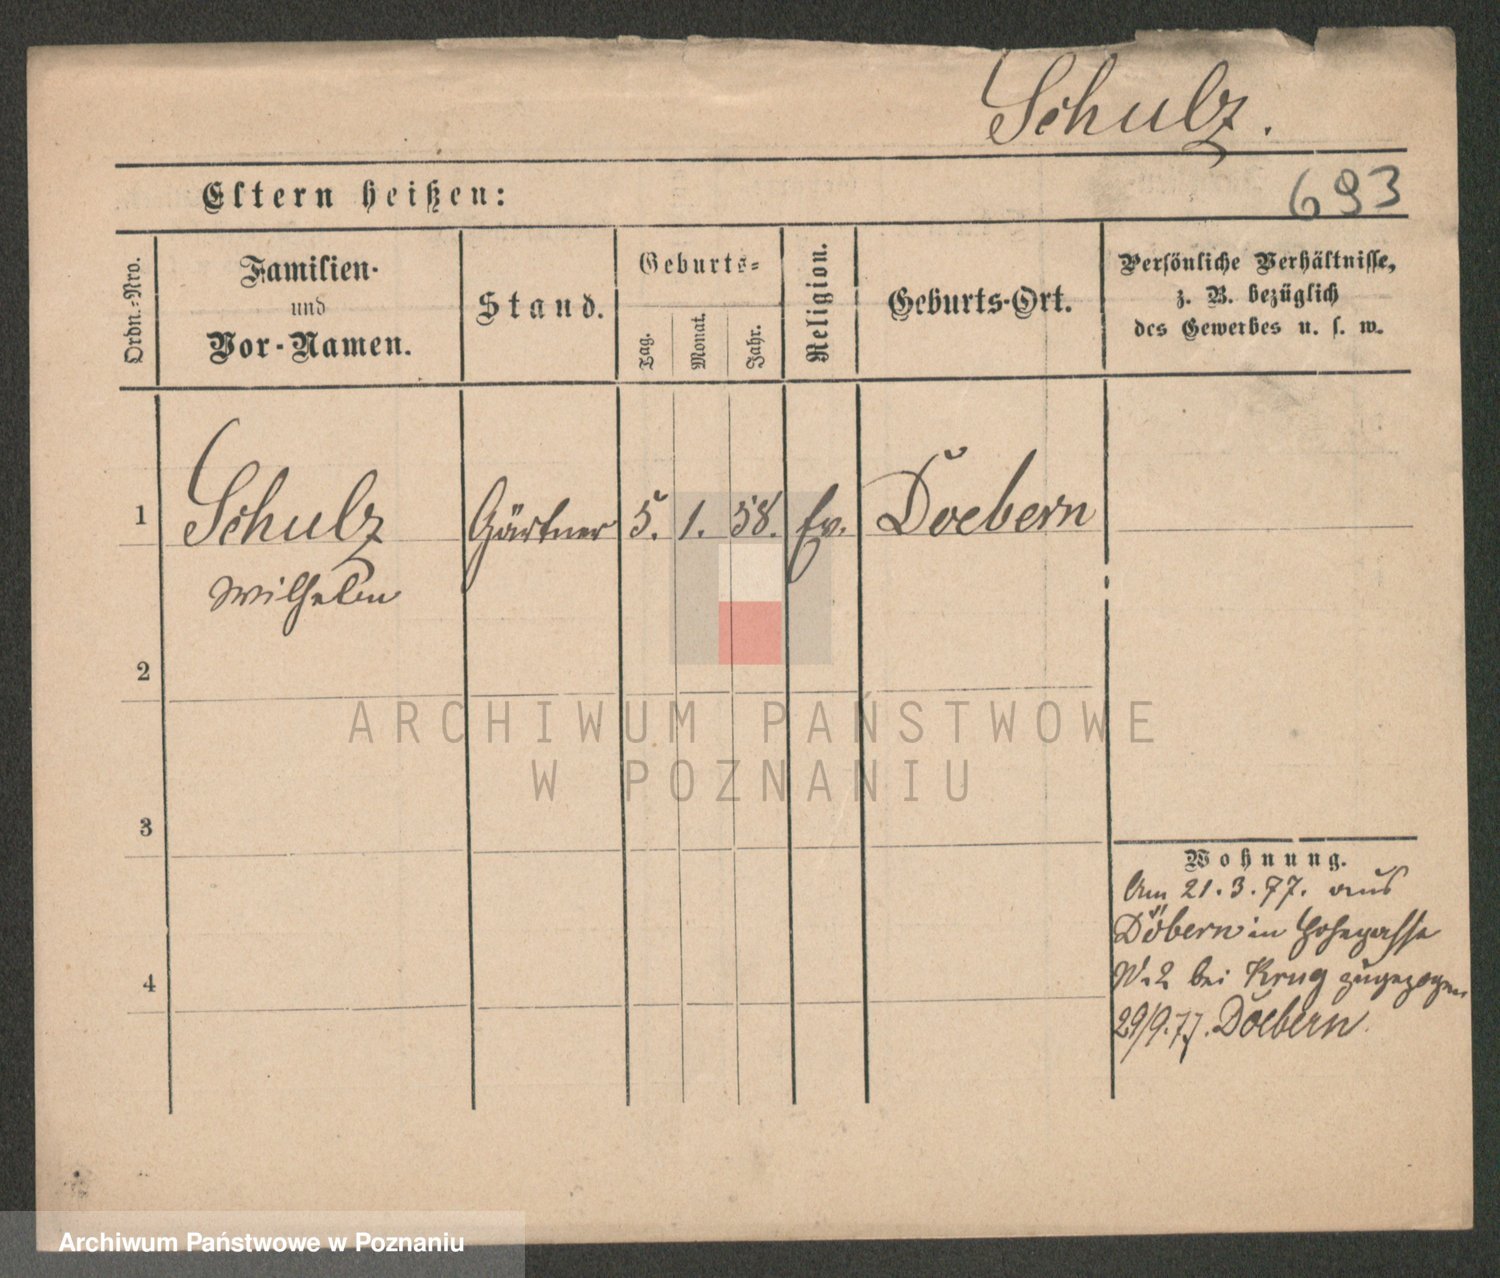 Schulz.
Eltern heißen:
693
Ordn.-Nro.
Familien-
und
Vor-Namen.
Stand.
Geburts-
Tag.
Monat.
Jahr.
Religion.
Geburts-Ort.
Persönliche Verhältnisse,
z. B. bezüglich
des Gewerbes u. s. w.
1 Schulz Gärtner 5. 1. 58. Ev. Doebern
Wilhelm
2
ARCHIWUM PAŃSTWOWE
W POZNANIU
3
Wohnung.
Am 21.3.77. aus
Döbern in Hohegasse
N. 2 bei Krug zugezogen
4
29/9.77. Doebern.
Archiwum Państwowe w Poznaniu